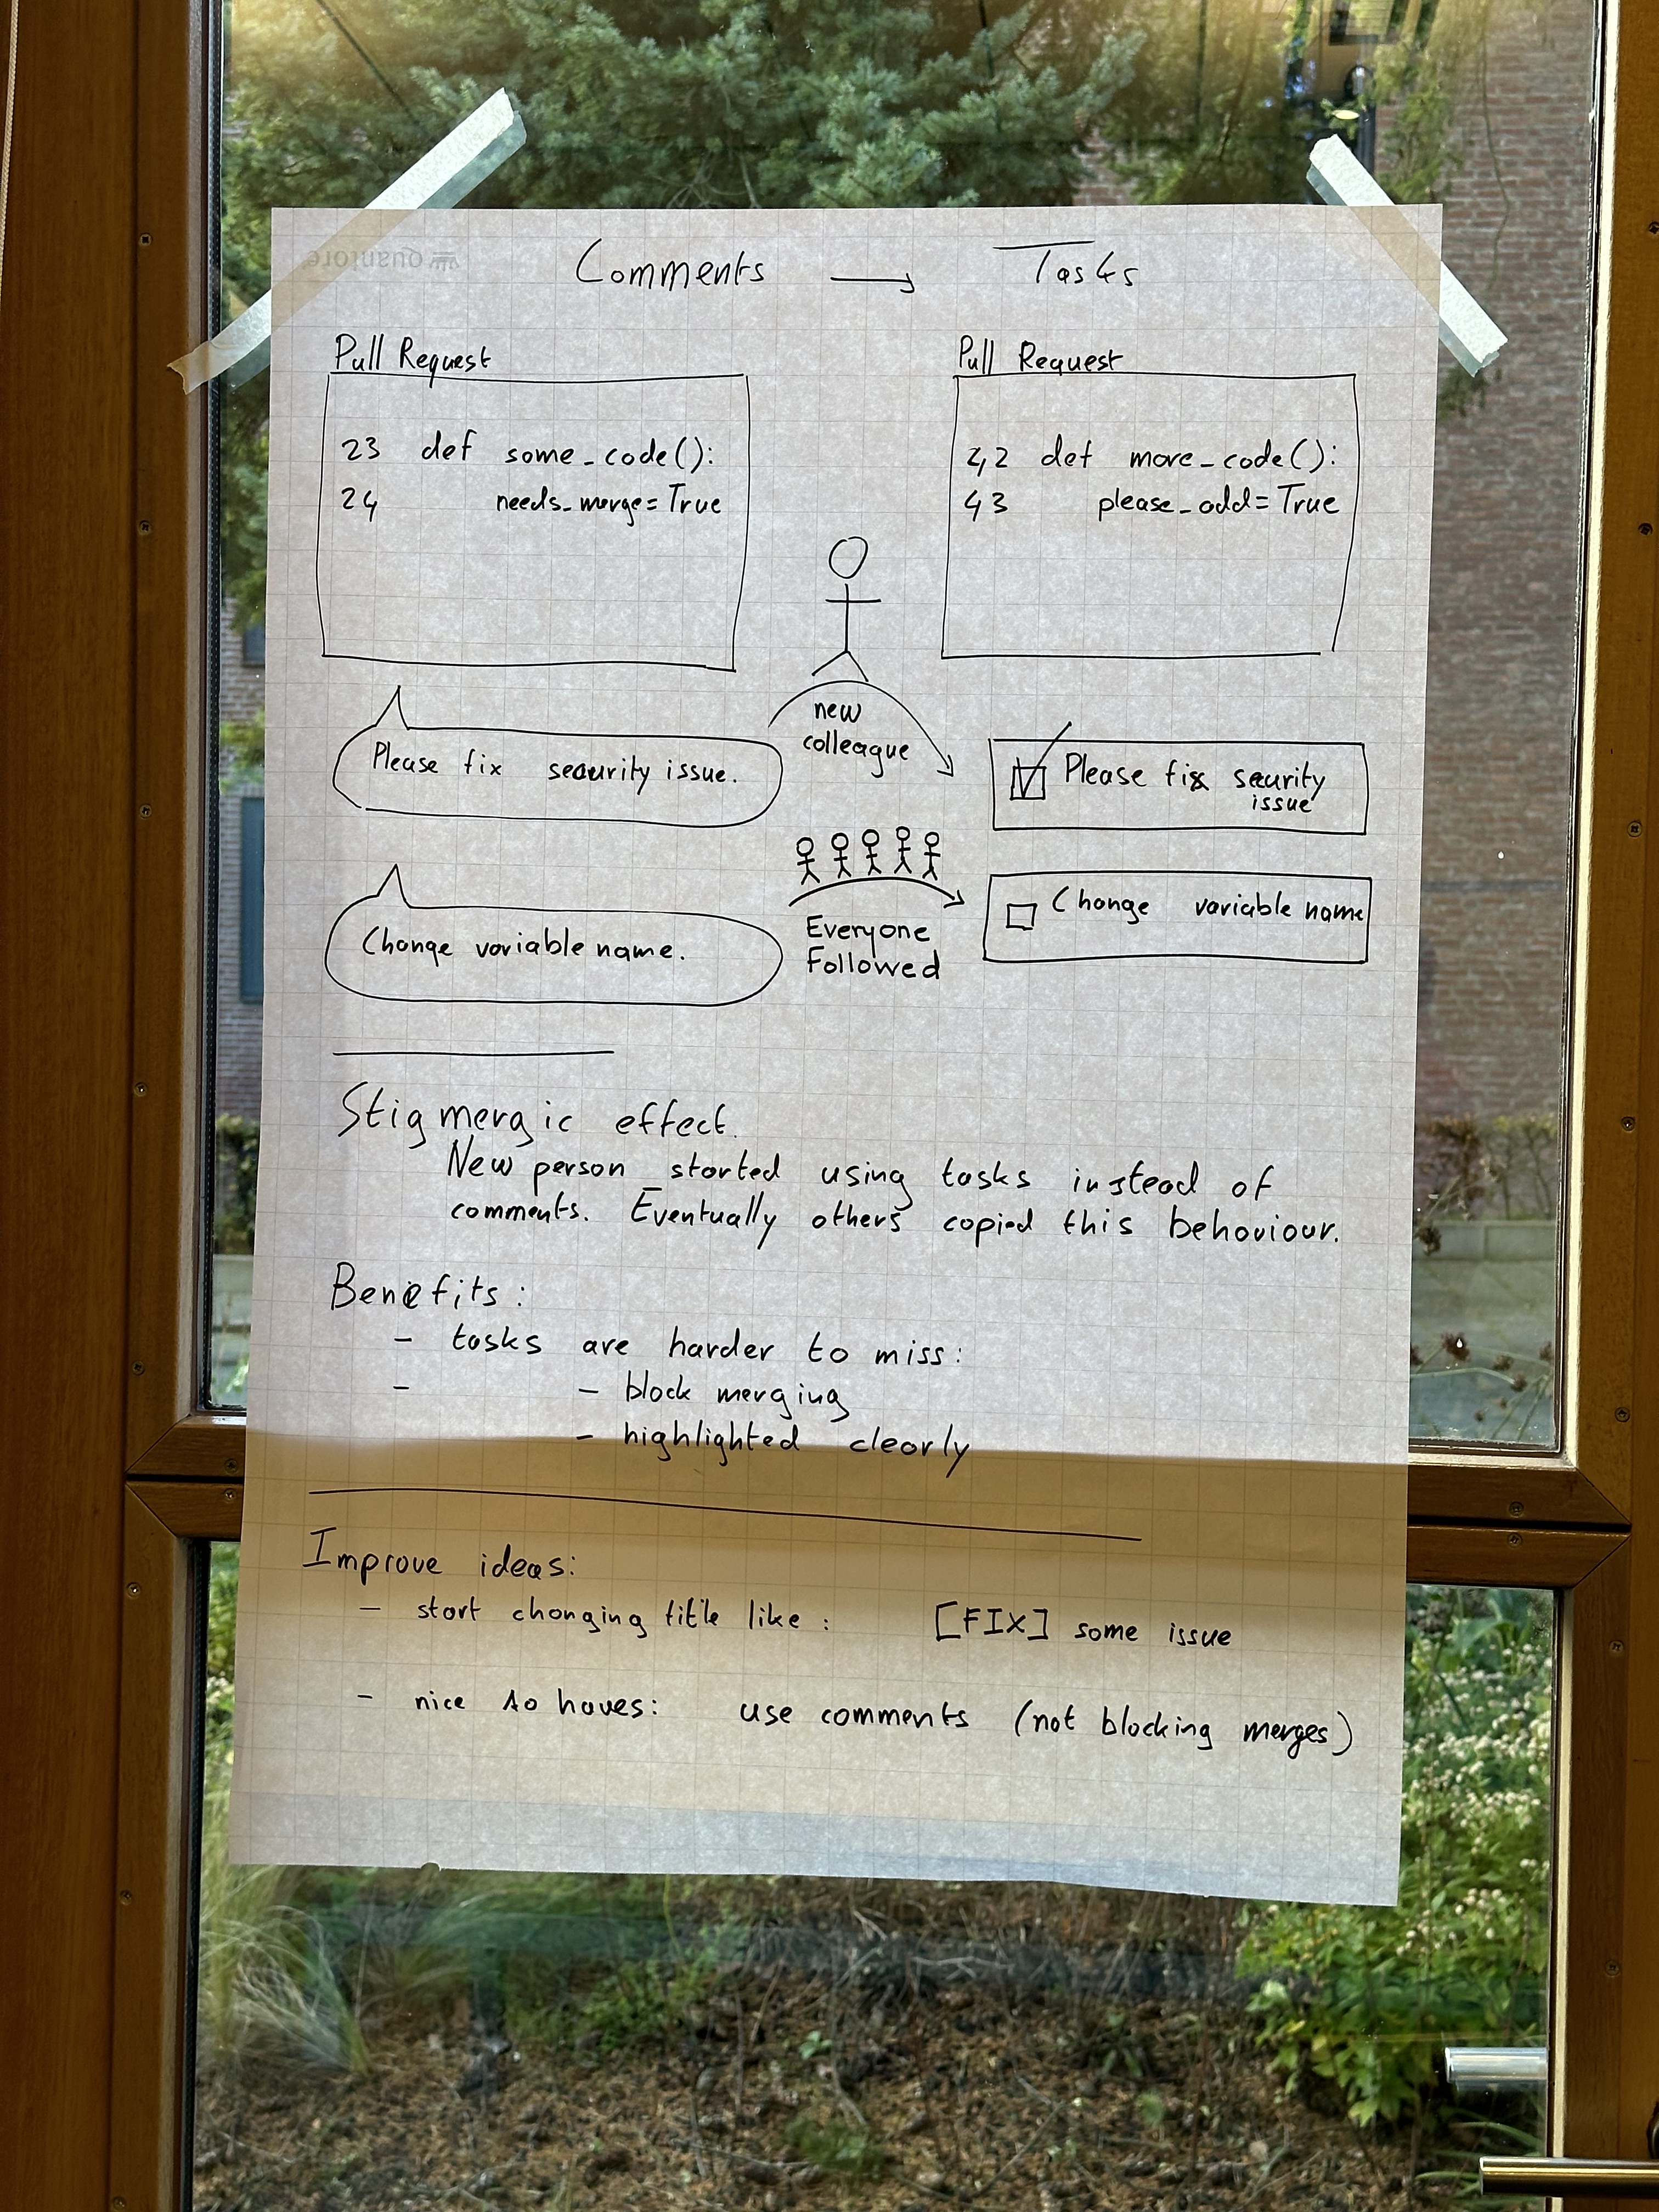 quantore
Comments → Tasks
Pull Request
23 def some_code():
24 needs_merge=True
Pull Request
42 def more_code():
43 please_add=True
new
colleague
Please fix security issue.
Please fix security
issue
Everyone
Followed
Change variable name.
Change variable name
Stigmergic effect.
New person started using tasks instead of
comments. Eventually others copied this behaviour.
Benefits:
- tasks are harder to miss:
- - block merging
- highlighted clearly
Improve ideas:
- start changing title like: [FIX] some issue
- nice to haves: use comments (not blocking merges)